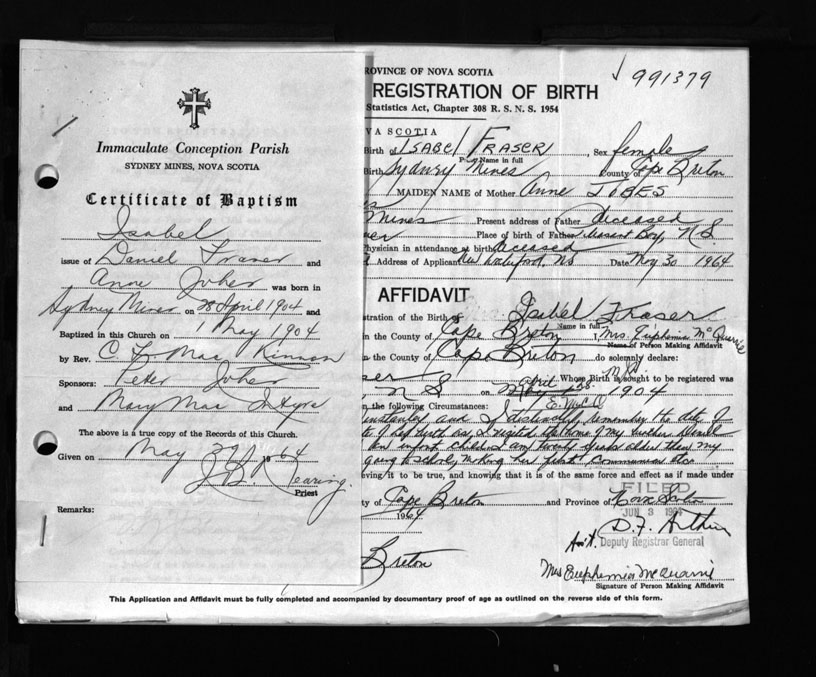 Immaculate Conception Parish
SYDNEY MINES, NOVA SCOTIA
Certificate of Baptism
Isabel
issue of Daniel Fraser and
Anne Johes was born in
Sydney Mines on 28 April 1904 and
Baptized in this Church on 1 May 1904
by Rev. C F Mac Kinnon
Sponsors: Peter Johes
and Mary Mac Intyre
The above is a true copy of the Records of this Church.
Given on May 29 1964
J. B. Kearing
Priest
Remarks:
ROVINCE OF NOVA SCOTIA
√ 991379
REGISTRATION OF BIRTH
Statistics Act, Chapter 308 R. S. N. S. 1954
VA SCOTIA
Birth of ISABEL FRASER, Sex female
Name in full
Birth Sydney Mines County of Cape Breton
MAIDEN NAME of Mother Anne JOBES
es
Mines Present address of Father deceased
er Place of birth of Father Pleasant Bay, N.S.
hysician in attendance at birth deceased
Address of Applicant New Waterford, N.S. Date May 30 1964
AFFIDAVIT
istration of the Birth of Isabel Fraser
Name in full
in the County of Cape Breton I, Mrs. Euphemia McQuarrie
Name of Person Making Affidavit
n the County of Cape Breton do solemnly declare:
ser Whose Birth is sought to be registered was
N S on April 28 1904
E. McQ
n the following Circumstances: I distinctly remember the date of
of her birth as I visited the home of my brother Daniel
infant child. I am twenty years older than my
going to school, making her first Communion etc
eving it to be true, and knowing that it is of the same force and effect as if made under
ty of Cape Breton and Province of Nova Scotia
FILED
JUN 3 1964
1964
D. F. Arthur
Ass't. Deputy Registrar General
Breton
Mrs Euphemia McQuarrie
Signature of Person Making Affidavit
This Application and Affidavit must be fully completed and accompanied by documentary proof of age as outlined on the reverse side of this form.